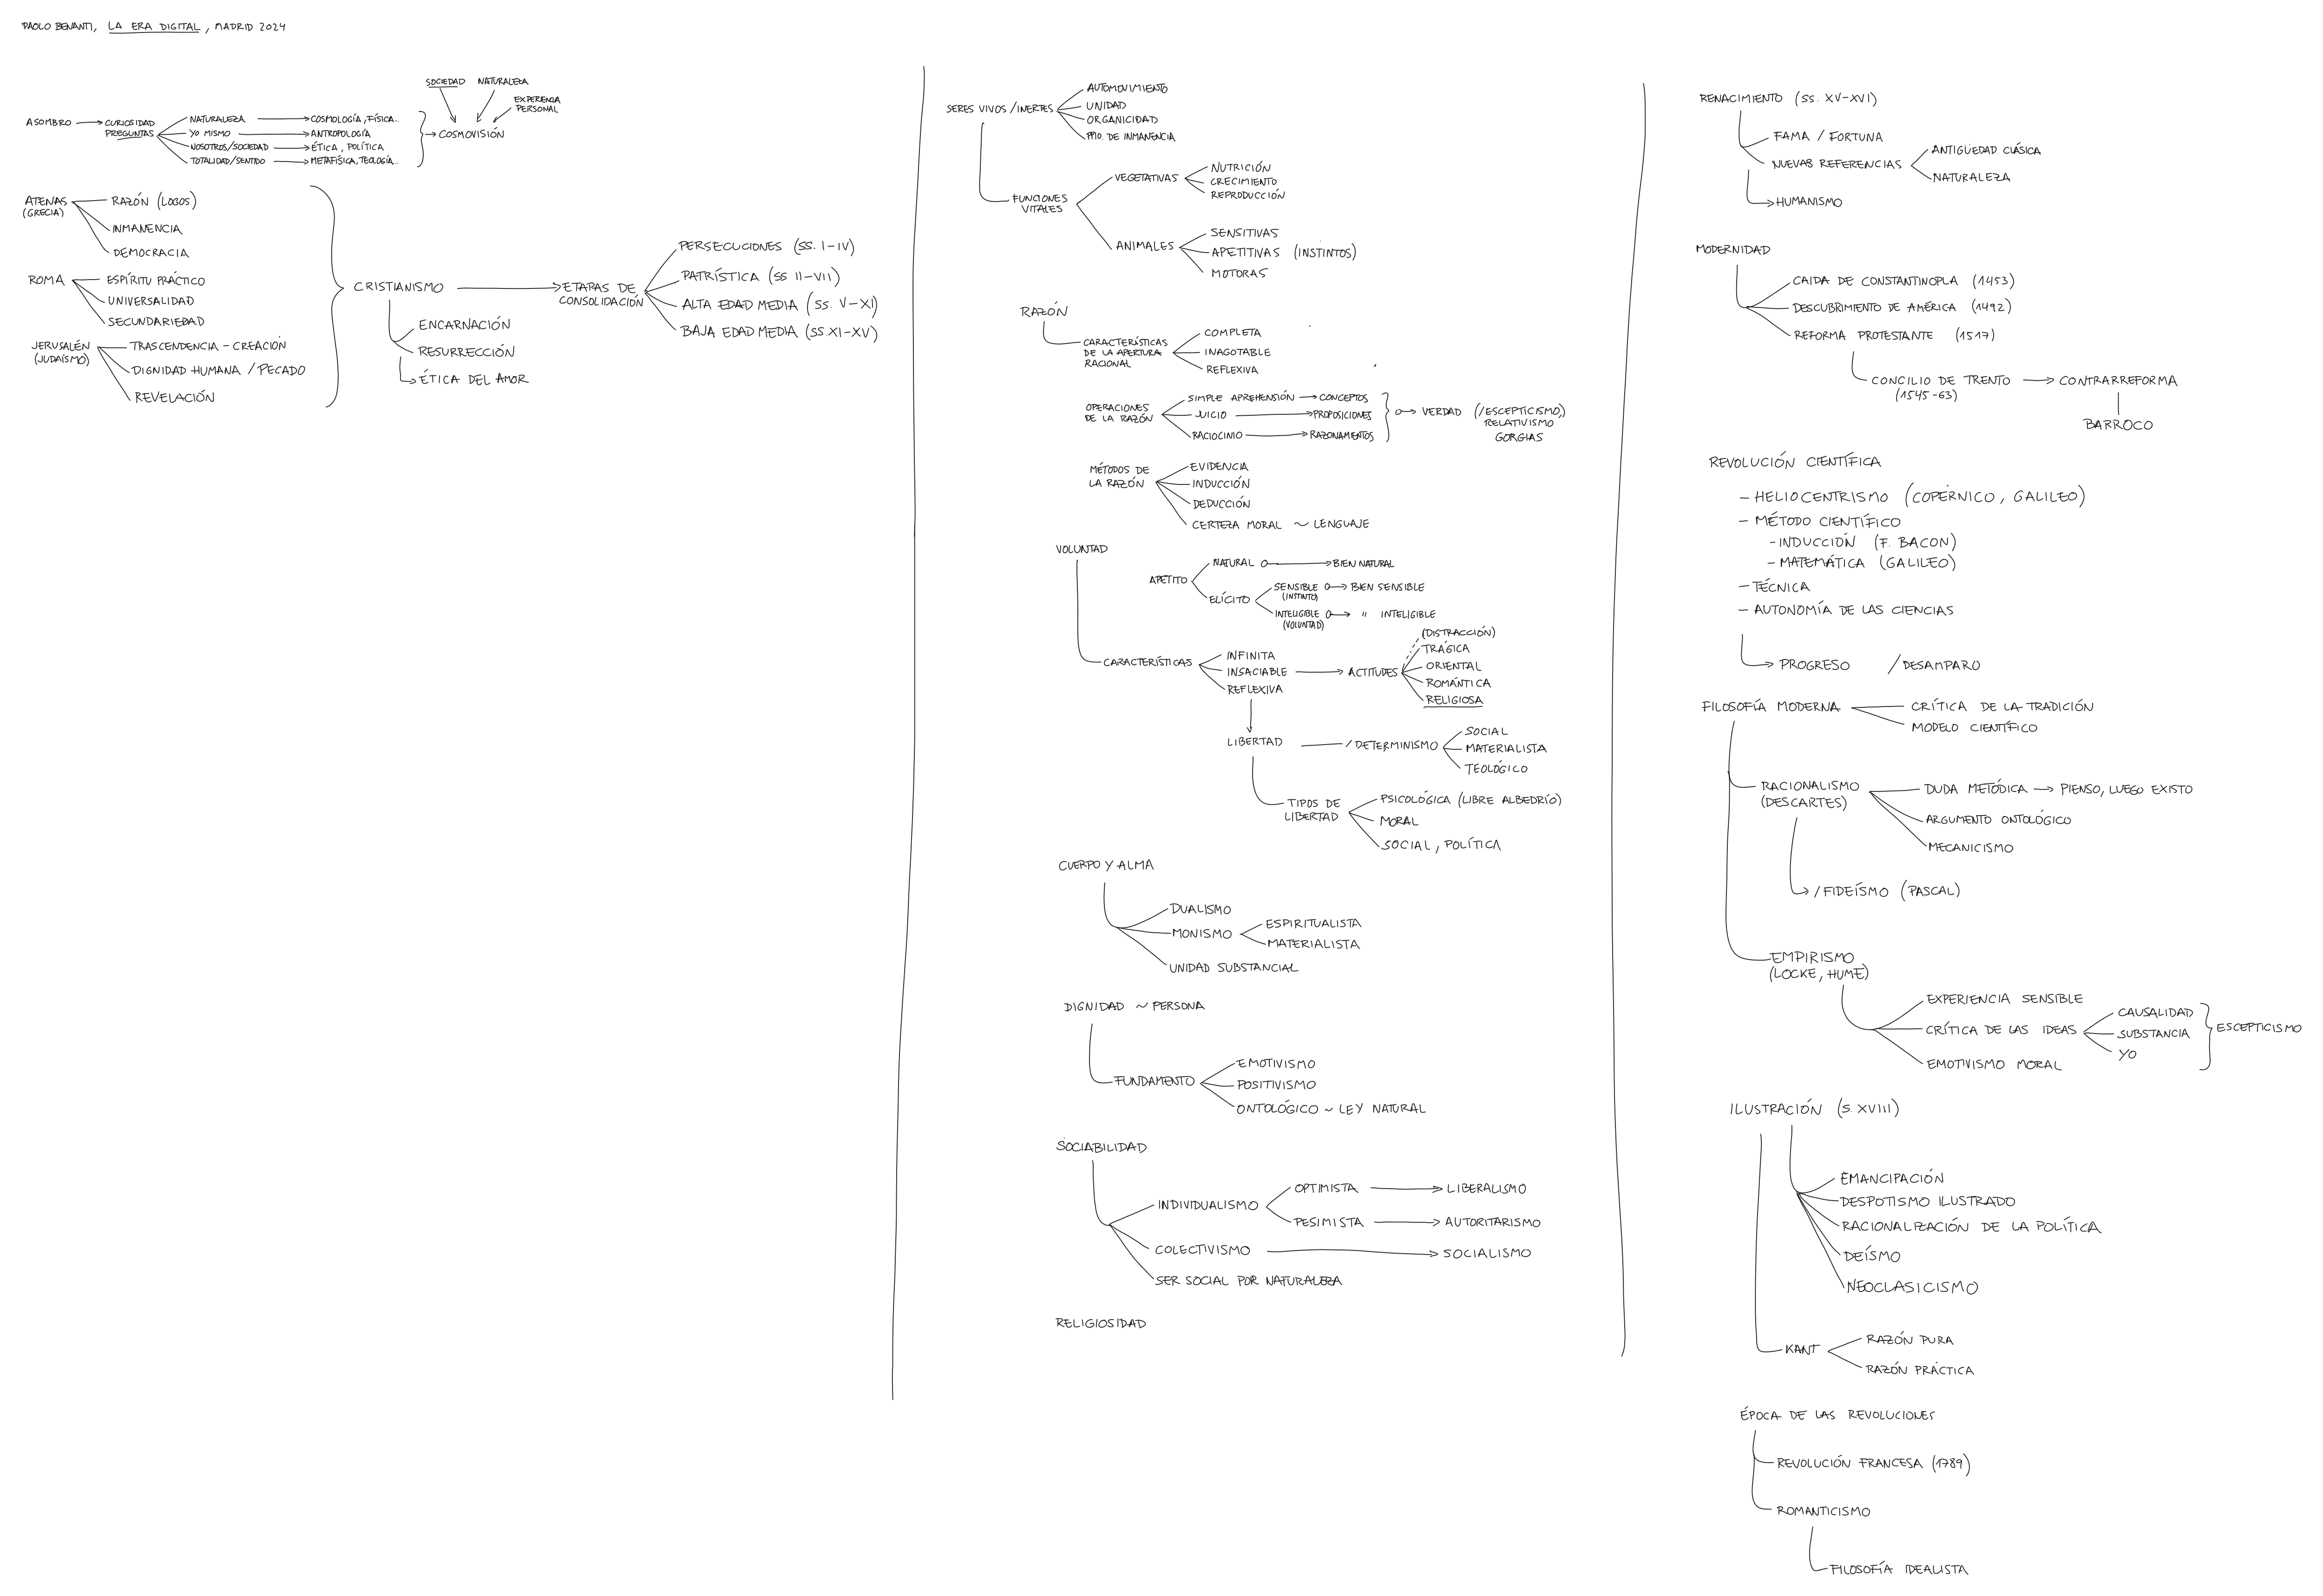 PAOLO BENANTI, LA ERA DIGITAL, MADRID 2024
SOCIEDAD NATURALEZA
EXPERIENCIA
PERSONAL
ASOMBRO CURIOSIDAD
PREGUNTAS
NATURALEZA COSMOLOGÍA, FÍSICA..
YO MISMO ANTROPOLOGÍA
NOSOTROS/SOCIEDAD ÉTICA, POLÍTICA
TOTALIDAD/SENTIDO METAFÍSICA, TEOLOGÍA..
COSMOVISIÓN
ATENAS
(GRECIA)
RAZÓN (LOGOS)
INMANENCIA
DEMOCRACIA
ROMA ESPÍRITU PRÁCTICO
UNIVERSALIDAD
SECUNDARIEDAD
JERUSALÉN
(JUDAÍSMO)
TRASCENDENCIA - CREACIÓN
DIGNIDAD HUMANA / PECADO
REVELACIÓN
CRISTIANISMO
ENCARNACIÓN
RESURRECCIÓN
ÉTICA DEL AMOR
ETAPAS DE
CONSOLIDACIÓN
PERSECUCIONES (SS. I-IV)
PATRÍSTICA (SS II-VII)
ALTA EDAD MEDIA (SS. V-XI)
BAJA EDAD MEDIA (SS. XI-XV)
SERES VIVOS / INERTES
AUTOMOVIMIENTO
UNIDAD
ORGANICIDAD
PPIO. DE INMANENCIA
FUNCIONES
VITALES
VEGETATIVAS
NUTRICIÓN
CRECIMIENTO
REPRODUCCIÓN
ANIMALES
SENSITIVAS
APETITIVAS (INSTINTOS)
MOTORAS
RAZÓN
CARACTERÍSTICAS
DE LA APERTURA
RACIONAL
COMPLETA
INAGOTABLE
REFLEXIVA
OPERACIONES
DE LA RAZÓN
SIMPLE APREHENSIÓN CONCEPTOS
JUICIO PROPOSICIONES
RACIOCINIO RAZONAMIENTOS
VERDAD (/ESCEPTICISMO,)
RELATIVISMO
GORGIAS
MÉTODOS DE
LA RAZÓN
EVIDENCIA
INDUCCIÓN
DEDUCCIÓN
CERTEZA MORAL ~ LENGUAJE
VOLUNTAD
APETITO
NATURAL BIEN NATURAL
ELÍCITO
SENSIBLE BIEN SENSIBLE
(INSTINTO)
INTELIGIBLE " INTELIGIBLE
(VOLUNTAD)
CARACTERÍSTICAS
INFINITA
INSACIABLE
REFLEXIVA
ACTITUDES
(DISTRACCIÓN)
TRÁGICA
ORIENTAL
ROMÁNTICA
RELIGIOSA
LIBERTAD / DETERMINISMO
SOCIAL
MATERIALISTA
TEOLÓGICO
TIPOS DE
LIBERTAD
PSICOLÓGICA (LIBRE ALBEDRÍO)
MORAL
SOCIAL, POLÍTICA
CUERPO Y ALMA
DUALISMO
MONISMO
ESPIRITUALISTA
MATERIALISTA
UNIDAD SUBSTANCIAL
DIGNIDAD ~ PERSONA
FUNDAMENTO
EMOTIVISMO
POSITIVISMO
ONTOLÓGICO ~ LEY NATURAL
SOCIABILIDAD
INDIVIDUALISMO
OPTIMISTA LIBERALISMO
PESIMISTA AUTORITARISMO
COLECTIVISMO SOCIALISMO
SER SOCIAL POR NATURALEZA
RELIGIOSIDAD
RENACIMIENTO (SS. XV-XVI)
FAMA / FORTUNA
NUEVAS REFERENCIAS
ANTIGÜEDAD CLÁSICA
NATURALEZA
HUMANISMO
MODERNIDAD
CAIDA DE CONSTANTINOPLA (1453)
DESCUBRIMIENTO DE AMÉRICA (1492)
REFORMA PROTESTANTE (1517)
CONCILIO DE TRENTO CONTRARREFORMA
(1545-63)
BARROCO
REVOLUCIÓN CIENTÍFICA
- HELIOCENTRISMO (COPÉRNICO, GALILEO)
- MÉTODO CIENTÍFICO
- INDUCCIÓN (F. BACON)
- MATEMÁTICA (GALILEO)
- TÉCNICA
- AUTONOMÍA DE LAS CIENCIAS
PROGRESO / DESAMPARO
FILOSOFÍA MODERNA
CRÍTICA DE LA TRADICIÓN
MODELO CIENTÍFICO
RACIONALISMO
(DESCARTES)
DUDA METÓDICA PIENSO, LUEGO EXISTO
ARGUMENTO ONTOLÓGICO
MECANICISMO
/ FIDEÍSMO (PASCAL)
EMPIRISMO
(LOCKE, HUME)
EXPERIENCIA SENSIBLE
CRÍTICA DE LAS IDEAS
CAUSALIDAD
SUBSTANCIA
YO
ESCEPTICISMO
EMOTIVISMO MORAL
ILUSTRACIÓN (S. XVIII)
EMANCIPACIÓN
DESPOTISMO ILUSTRADO
RACIONALIZACIÓN DE LA POLÍTICA
DEÍSMO
NEOCLASICISMO
KANT
RAZÓN PURA
RAZÓN PRÁCTICA
ÉPOCA DE LAS REVOLUCIONES
REVOLUCIÓN FRANCESA (1789)
ROMANTICISMO
FILOSOFÍA IDEALISTA